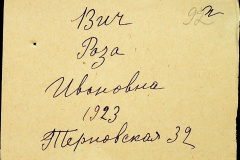 Вич
Роза
Ивановна
1923
Терновская 32